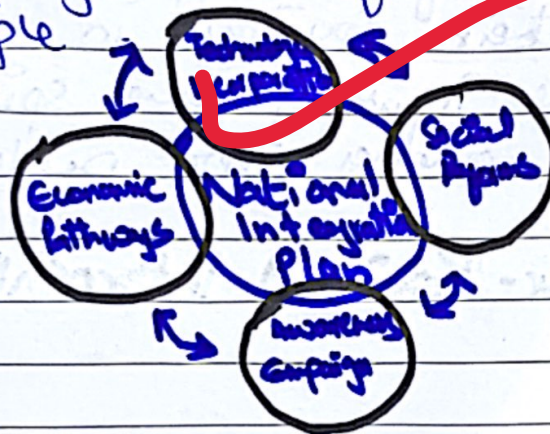 ple
Technology
Incorporation
Social
Reforms
Economic
Pathways
National
Integration
Plan
Awareness
Campaign